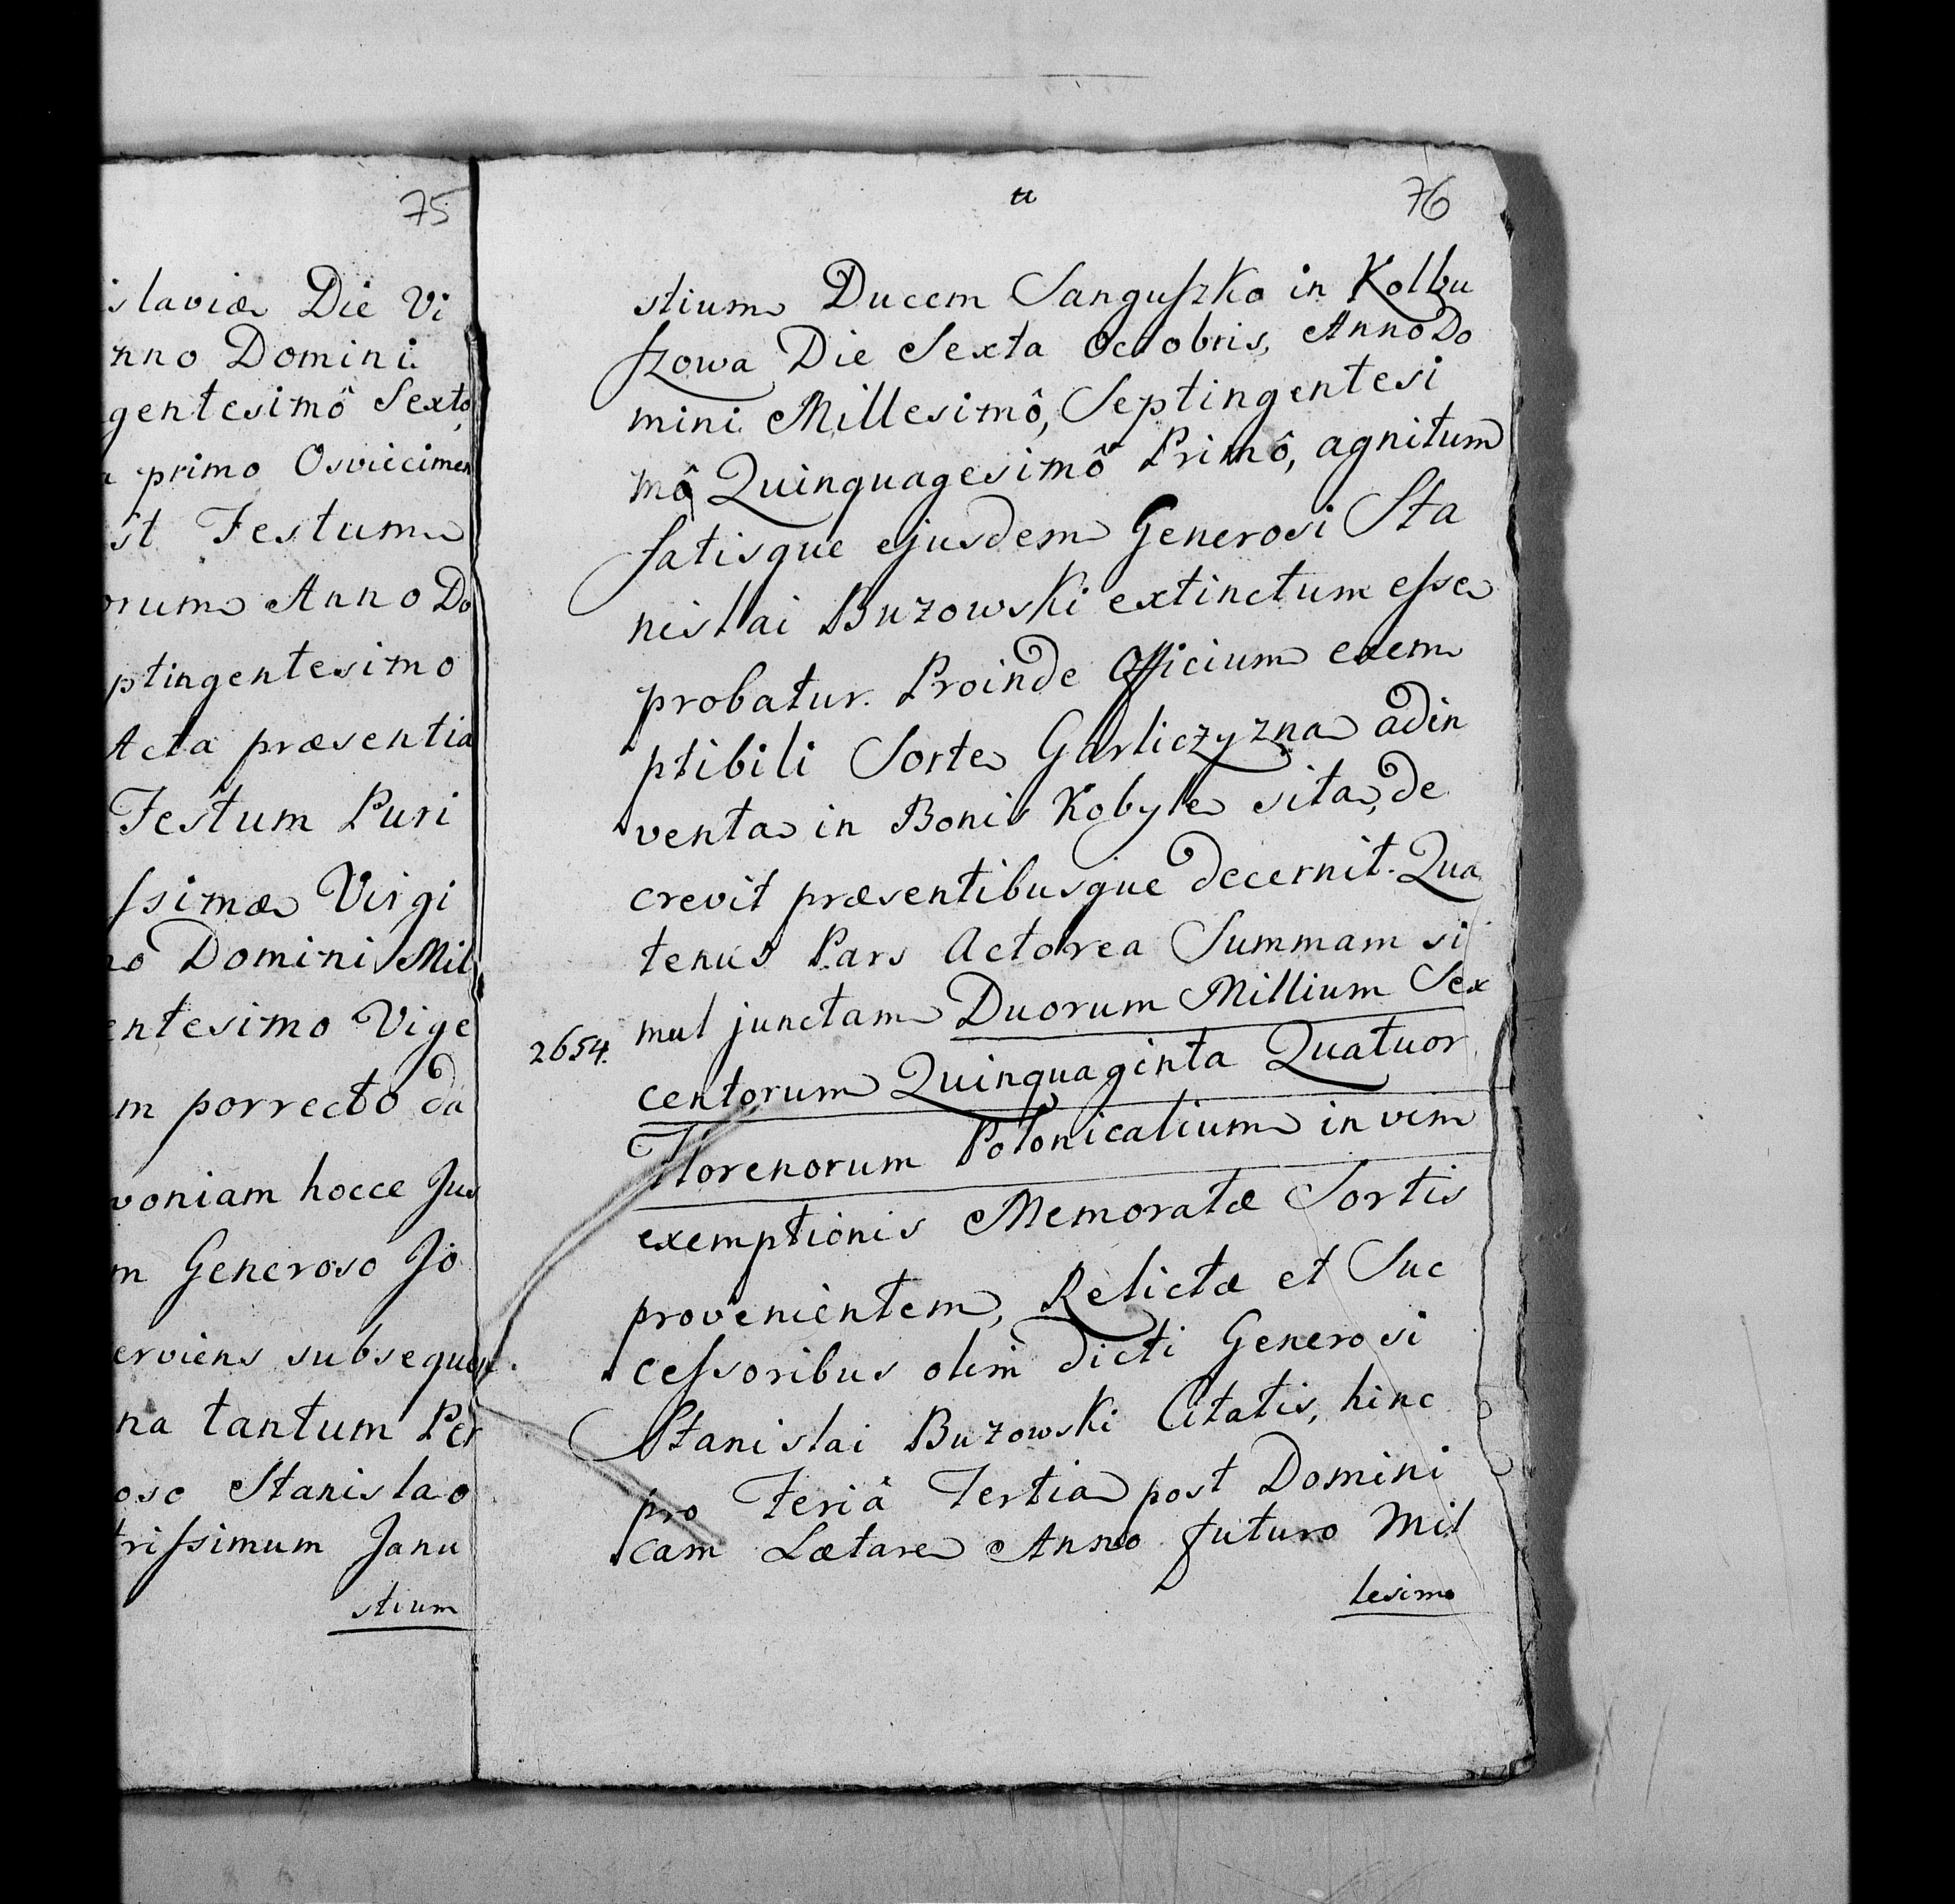 75
islaviæ Die Vi
nno Domini
gentesimô Sexto,
primo Osviecimen
st Festum
orum Anno Do
ptingentesimo
Acta præsentia
Festum Puri
ssimæ Virgi
nô Domini Mil
entesimo Vige
m porrecto da
voniam hocce Jus
m Generoso Jo
erviens subsequen
na tantum Per
oso Stanislao
trissimum Janu
stium
76
stium Ducem Sanguszko in Kolbu
szowa Die Sexta Octobris, Anno Do
mini Millesimô, Septingentesi
mô Quinquagesimô Primô, agnitum
fatisque ejusdem Generosi Sta
nislai Buzowski extinctum esse
probatur. Proinde Officium exem
ptibili Sorte Garliczyzna adin
venta in Bonis Kobyle sita, de
crevit præsentibusque decernit. Qua
tenus Pars Actorea Summam si
mul junctam Duorum Millium Sex
2654. centorum Quinquaginta Quatuor
Florenorum Polonicalium in vim
exemptionis Memoratæ Sortis
provenientem, Relictæ et Suc
cessoribus olim dicti Generosi
Stanislai Buzowski Citatis, hinc
pro Feriâ Tertia post Domini
cam Lætare Anno futuro Mil
lesimo